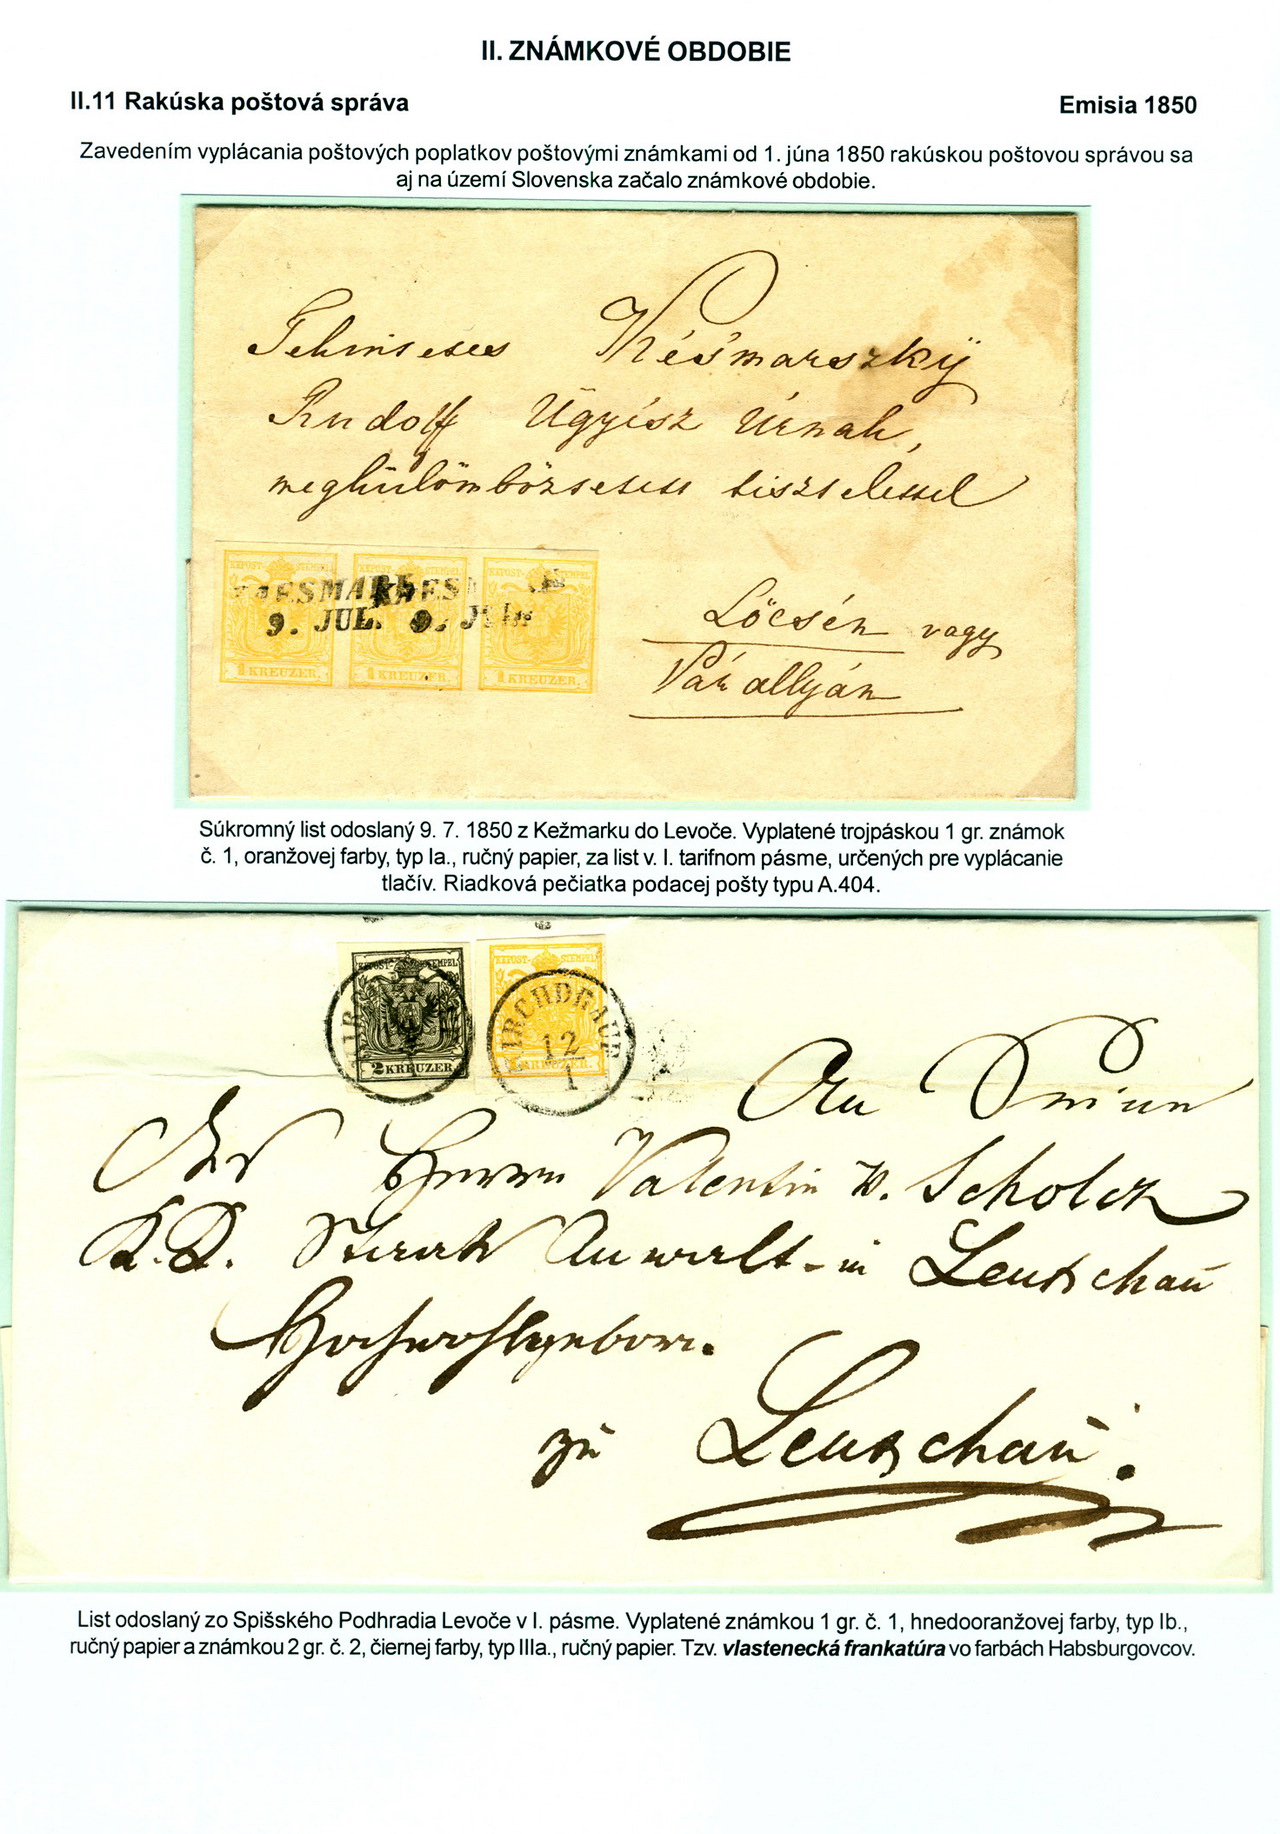 II. ZNÁMKOVÉ OBDOBIE
II.11 Rakúska poštová správa
Emisia 1850
Zavedením vyplácania poštových poplatkov poštovými známkami od 1. júna 1850 rakúskou poštovou správou sa
aj na území Slovenska začalo známkové obdobie.
Késmarszkÿ
Rudolff Ügyísz Úrnak,
Löcsén vagy
Várallyán
KKPOST-STEMPEL KKPOST-STEMPEL KKPOST-STEMPEL
KAESMARK KAESMARK
9. JUL. 9. JUL.
1 KREUZER. 1 KREUZER. 1 KREUZER.
Súkromný list odoslaný 9. 7. 1850 z Kežmarku do Levoče. Vyplatené trojpáskou 1 gr. známok
č. 1, oranžovej farby, typ Ia., ručný papier, za list v. I. tarifnom pásme, určených pre vyplácanie
tlačív. Riadková pečiatka podacej pošty typu A.404.
KKPOST-STEMPEL KKPOST-STEMPEL
KIRCHDRAUF
12
1
2 KREUZER. 1 KREUZER.
An Seine
Herrn Valentin v. Scholcz
K.K. Staats Anwalt - in Leutschau
Hochwohlgeborn.
zu Leutschau.
List odoslaný zo Spišského Podhradia Levoče v I. pásme. Vyplatené známkou 1 gr. č. 1, hnedooranžovej farby, typ Ib.,
ručný papier a známkou 2 gr. č. 2, čiernej farby, typ IIIa., ručný papier. Tzv. vlastenecká frankatúra vo farbách Habsburgovcov.